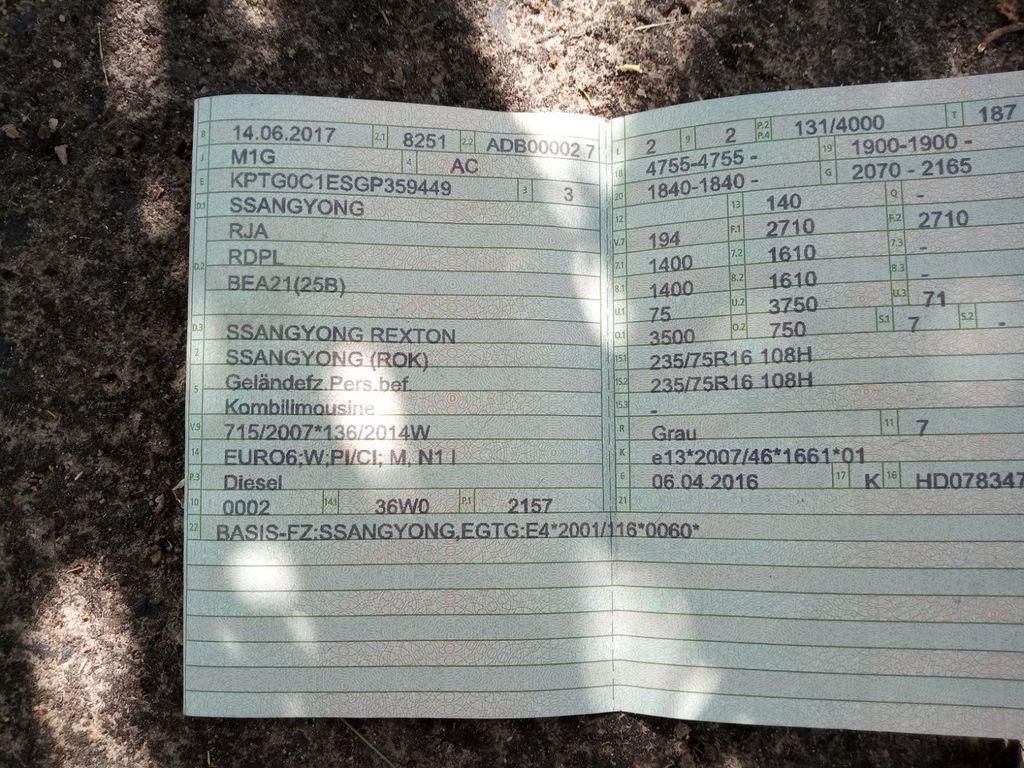 B 14.06.2017 2.1 8251 2.2 ADB00002 7
J M1G 4 AC
E KPTG0C1ESGP359449 3 3
D.1 SSANGYONG
RJA
D.2 RDPL
BEA21(25B)
D.3 SSANGYONG REXTON
2 SSANGYONG (ROK)
5 Geländefz.Pers.bef.
Kombilimousine
V.9 715/2007*136/2014W
14 EURO6;W;PI/CI; M, N1 I
P.3 Diesel
10 0002 14.1 36W0 P.1 2157
22 BASIS-FZ:SSANGYONG,EGTG:E4*2001/116*0060*
L 2 9 2 P.2 P.4 131/4000 T 187
18 4755-4755 - 19 1900-1900 -
20 1840-1840 - G 2070 - 2165
12 13 140 Q -
V.7 194 F.1 2710 F.2 2710
7.1 1400 7.2 1610 7.3 -
8.1 1400 8.2 1610 8.3 -
U.1 75 U.2 3750 U.3 71
O.1 3500 O.2 750 S.1 7 S.2 -
15.1 235/75R16 108H
15.2 235/75R16 108H
15.3 -
R Grau 11 7
K e13*2007/46*1661*01
6 06.04.2016 17 K 16 HD078347
21